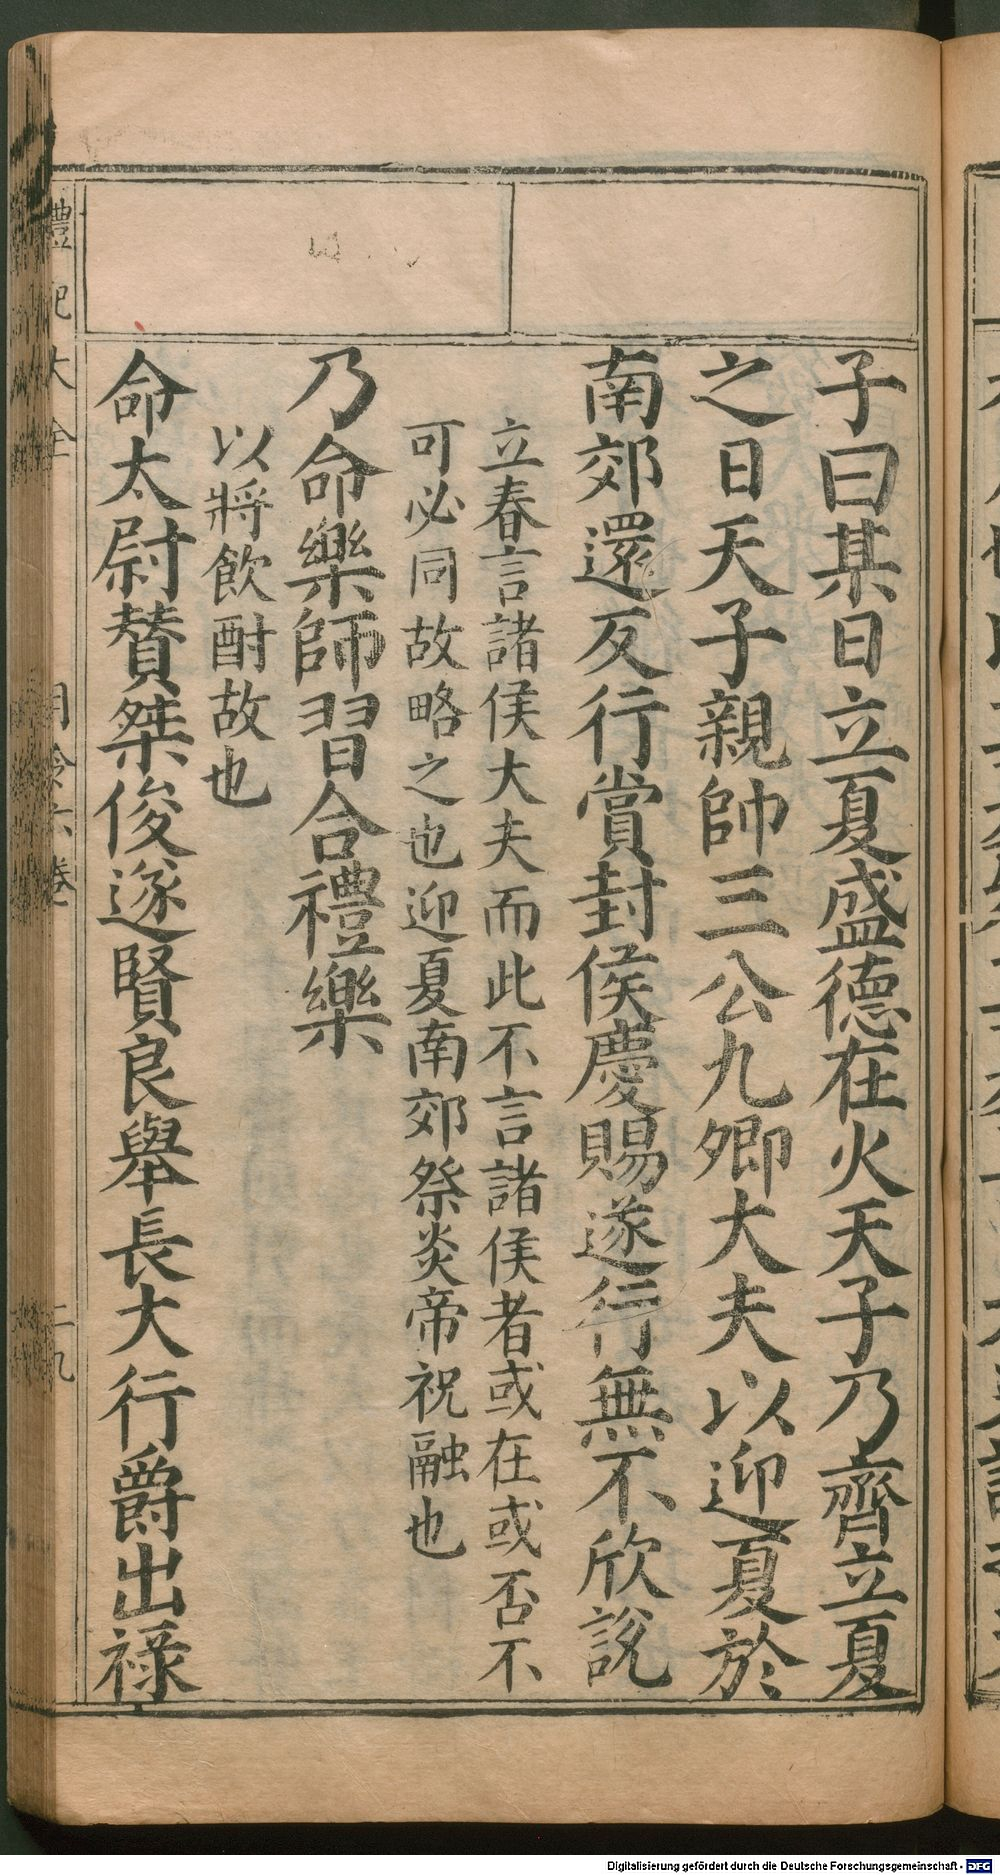 子曰某日立夏盛德在火天子乃齊立夏
之日天子親帥三公九卿大夫以迎夏於
南郊還反行賞封侯慶賜遂行無不欣說
立春言諸侯大夫而此不言諸侯者或在或否不
可必同故略之也迎夏南郊祭炎帝祝融也
乃命樂師習合禮樂
以將飲酎故也
命太尉贊桀俊遂賢良舉長大行爵出祿
禮記大全
月令六卷
二九
Digitalisierung gefördert durch die Deutsche Forschungsgemeinschaft - DFG